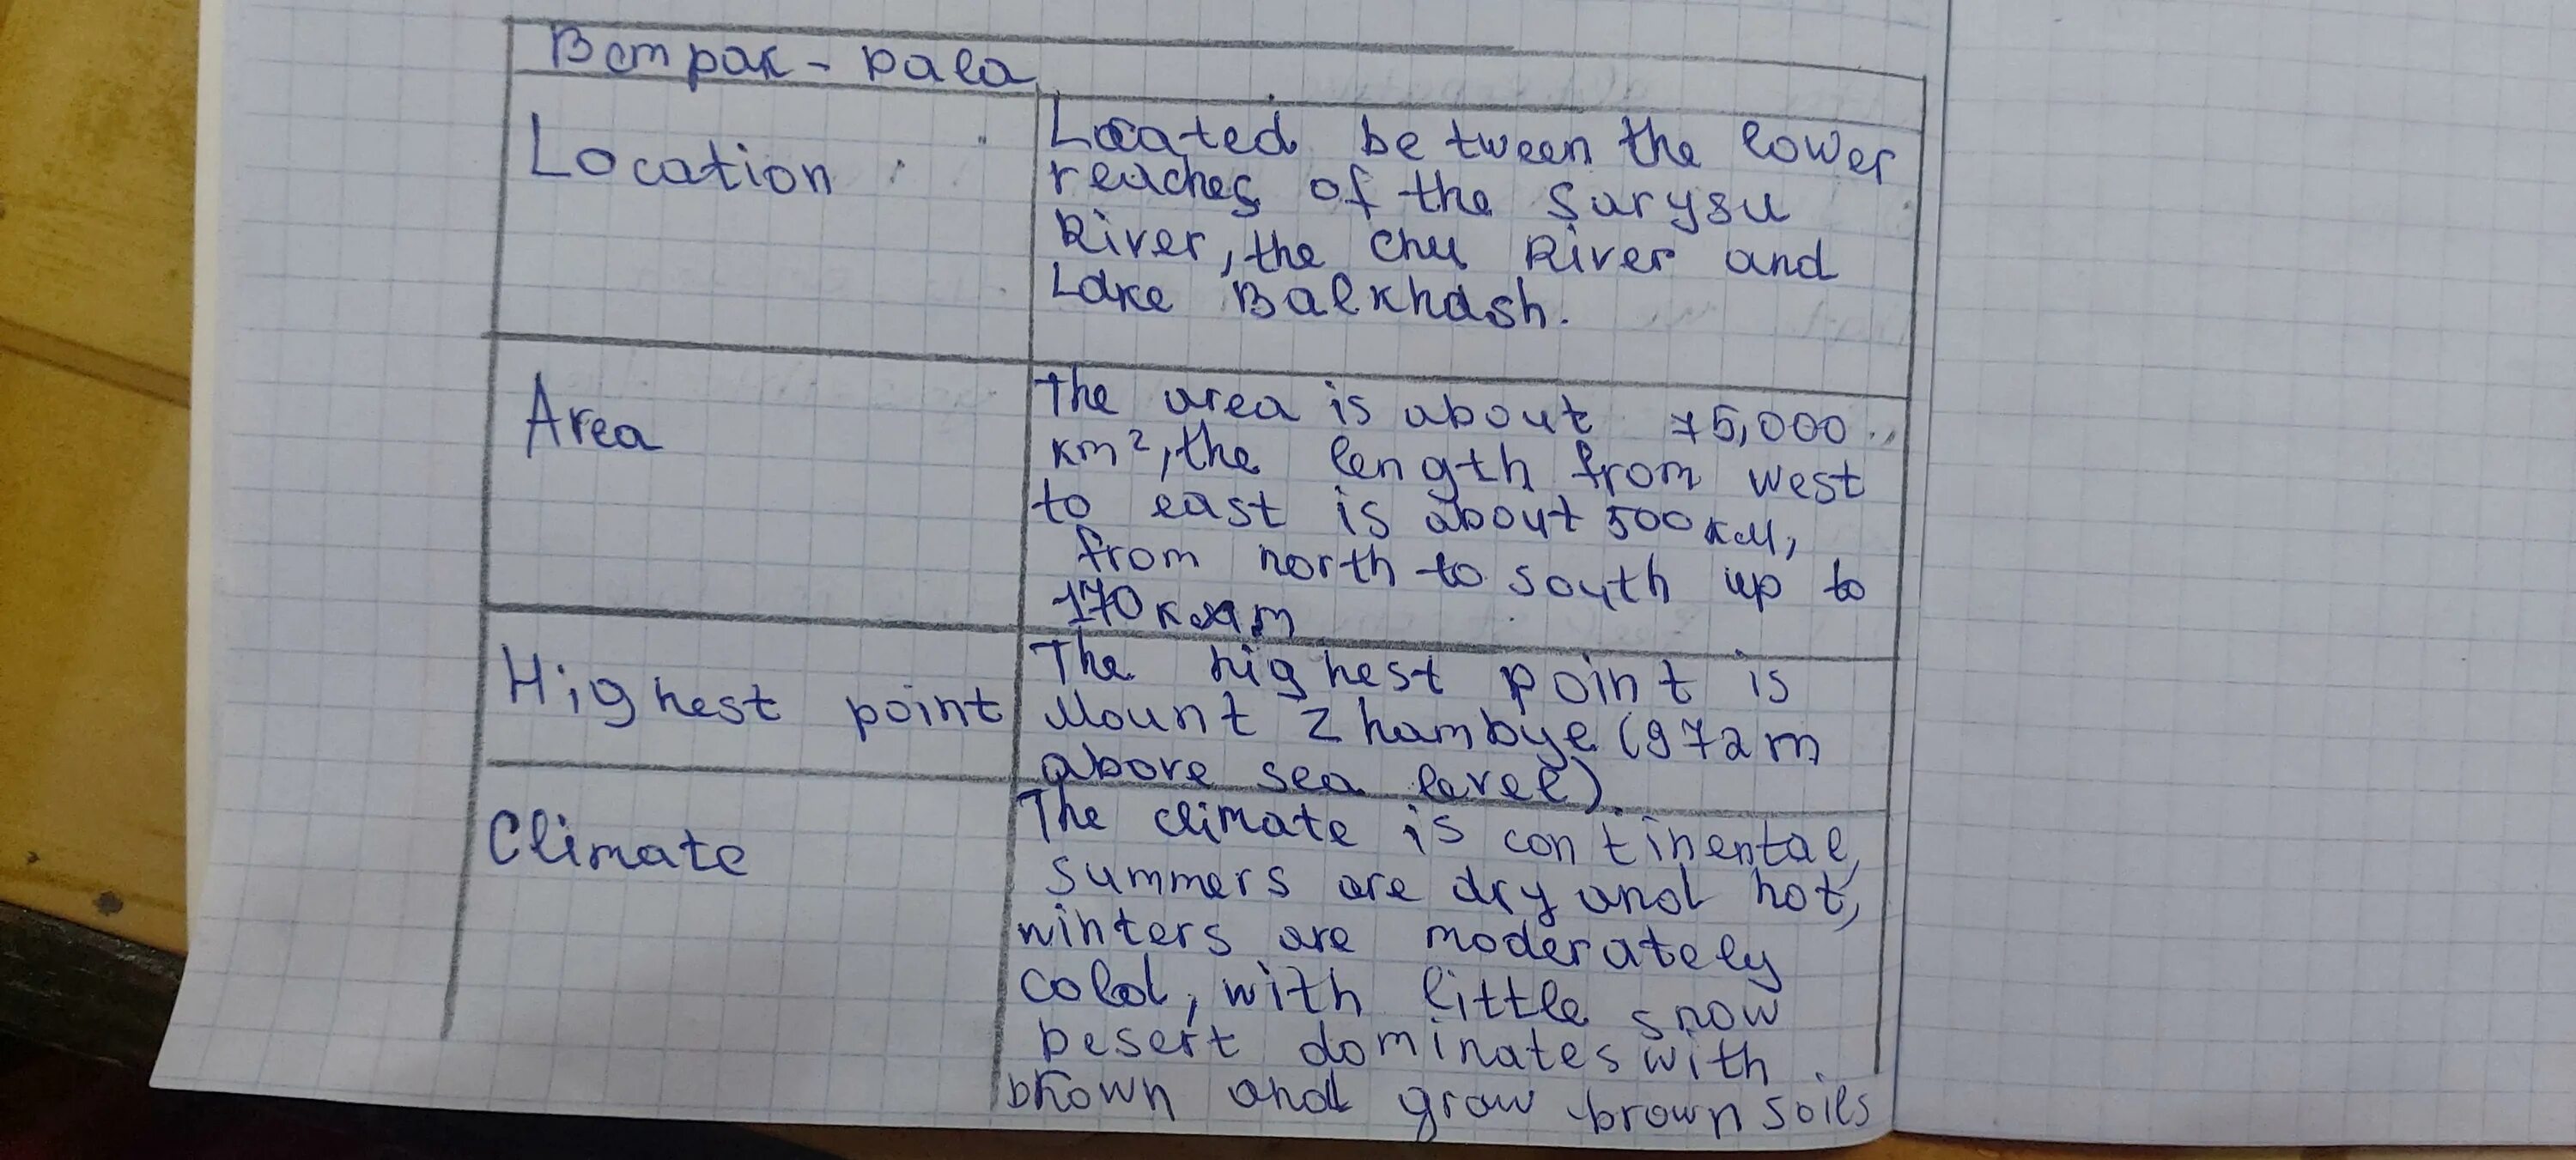 Bempak - Dala
Location
Located between the lower
reaches of the Surysu
River, the Chu River and
Lake Balkhash.
Area
The area is about 75,000
km², the length from west
to east is about 500 км,
from north to south up to
170 km
Highest point
The highest point is
Mount Zhambyl (972 m
above sea level).
Climate
The climate is continental,
summers are dry and hot,
winters are moderately
cold, with little snow
Desert dominates with
brown and grow-brown soils